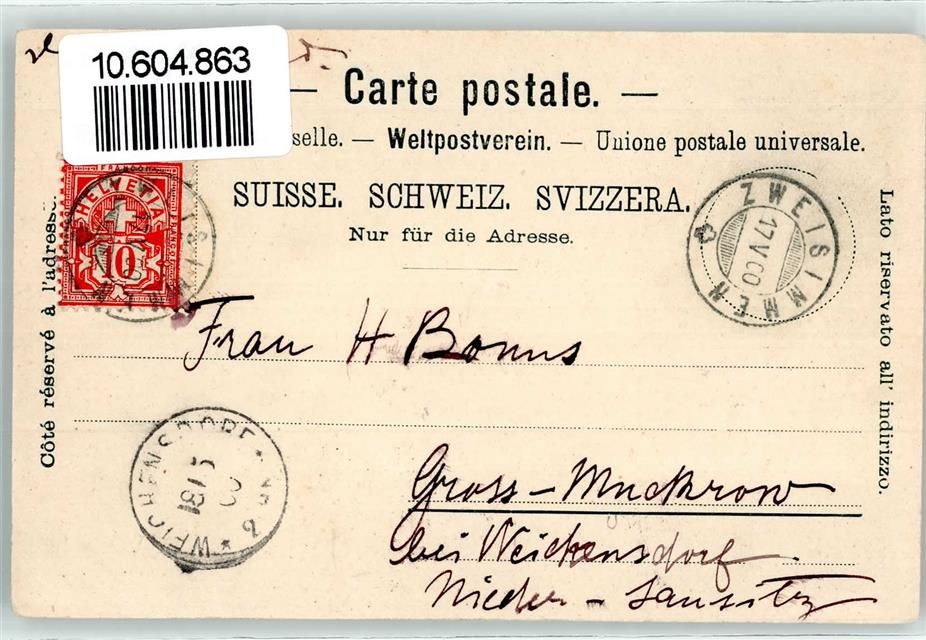 10.604.863
— Carte postale. —
selle. — Weltpostverein. — Unione postale universale.
SUISSE. SCHWEIZ. SVIZZERA.
Nur für die Adresse.
Côté réservé à l'adresse.
Lato riservato all' indirizzo.
FRANCO
HELVETIA
10
ZWEISIMMEN
17.V.00
Frau H Bonus
WEICHENSDORF
18 5
00
Gross-Muckrow
bei Weichensdorf
Nieder-Lausitz